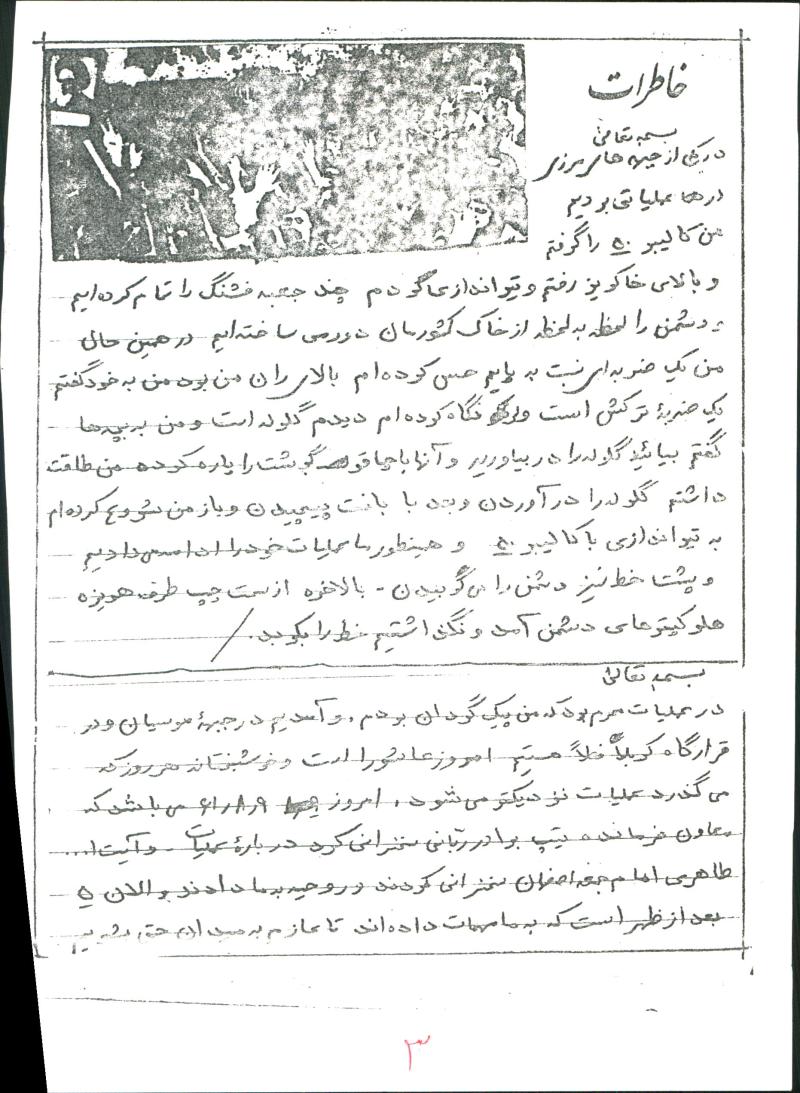 خاطرات
بسمه تعالی
در یکی از جبهه های مرزی
در ها عملیاتی بودیم
من کالیبر ۵۰ را گرفتم
و بالای خاکریز رفتم و تیراندازی کردم چند جعبه فشنگ را تمام کرده ایم
دشمن را لحظه به لحظه از خاک کشورمان دورمی ساخته ایم در همین حال
من یک ضربه ای نسبت به پایم حس کرده ام بالای ران من بود من به خود گفتم
یک ضربهٔ ترکش است نگاه کرده ام دیدم گلوله است و من به بچه ها
گفتم بیائید گلوله را در بیاورید و آنها با چاقو گوشت را پاره کرده من طاقت
داشتم گلوله را در آوردن وبعد با باند پیچیدن وباز من شروع کرده ام
به تیراندازی با کالیبر ۵۰ و همینطور ما عملیات خود را ادامه می دادیم
و پشت خط نیز دشمن را می کوبیدن - بالاخره از سمت چپ طرف هویزه
هلوکیترهای دشمن آمد و نگذاشتیم خط را بکوبد.
بسمه تعالی
در عملیات محرم بود که من پیک گردان بودم. و آمدیم در جبههٔ موسیان و در
قرارگاه کربلا فعلاً هستیم امروز عاشورا است و خوشبختانه هر روز که
می گذرد عملیات نزدیکتر می شود. امروز ۶۱/۸/۹ می باشد که
معاون فرمانده تیپ برادر ربانی سخنرانی کرد دربارهٔ عملیات و آیت ا...
طاهری امام جمعه اصفهان سخنرانی کردند و روحیه به ما دادند و الان ۵
بعد از ظهر است که به ما مهمات داده اند تا عازم به میدان حق بشویم
۳